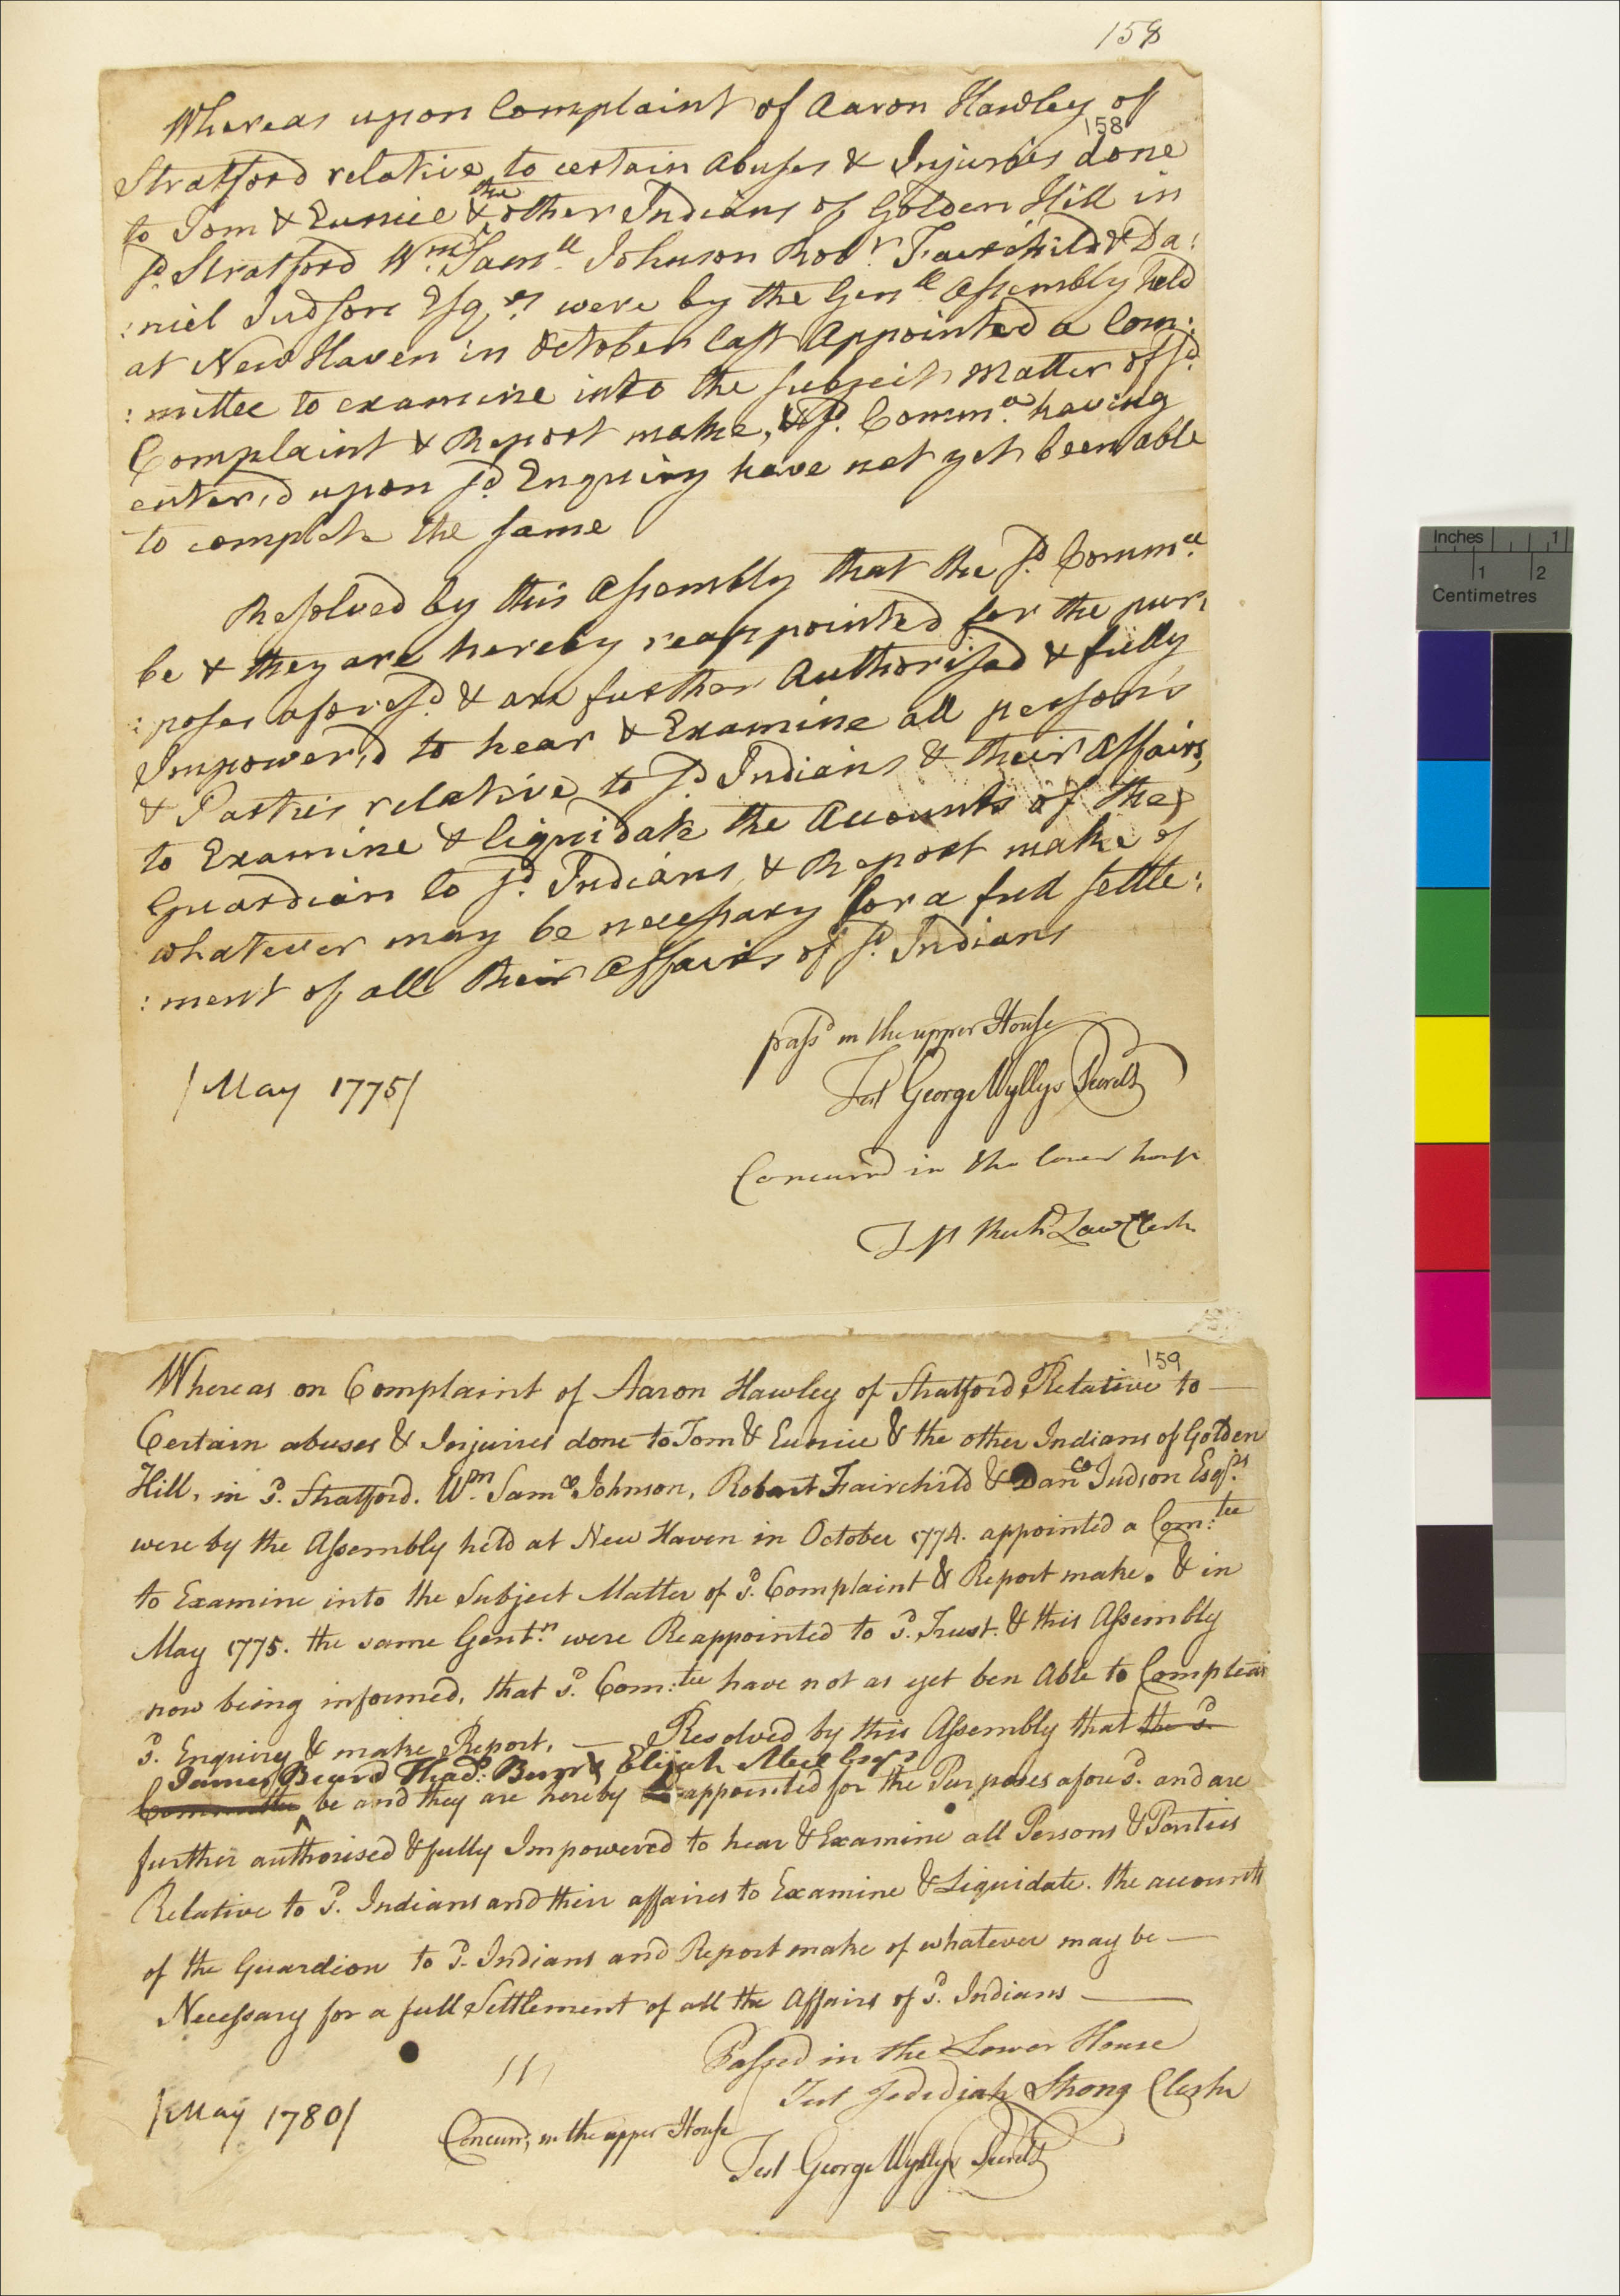 158
Whereas upon Complaint of Aaron Hawley of
158
Stratford relative to certain Abuses & Injuries done
to Tom & Eunice & the other Indians of Golden Hill in
sd. Stratford Wm. Samll. Johnson Robt. Fairchild & Da:
:niel Judson Esqrs. were by the Genll Assembly held
at New Haven in October last Appointed a Com:
:mittee to examine into the subject Matter of sd.
Complaint & Report make, & sd. Commee. having
enter,d upon sd. Enquiry have not yet been able
to complete the same
Resolved by this Assembly that the sd. Commee.
be & they are hereby reappointed for the pur:
:poses aforesd. & are further Authorised & fully
Impower,d to hear & Examine all persons
& Parties relative to sd. Indians & their Affairs,
to Examine & liquidate the Accounts of the
Guardian to sd. Indians, & Report make of
whatever may be necessary for a full settle:
:ment of all their Affairs of sd. Indians
passd in the upper House
Test George Wyllys Secrety
/May 1775/
Concurrd in the lower house
Test Richd Law Clerk
159
Whereas on Complaint of Aaron Hawley of Stratford Relative to
Certain abuses & Injuries done to Tom & Eunice & the other Indians of Golden
Hill, in sd. Stratford. Wm. Saml Johnson, Robert Fairchild & Danl Judson Esqrs.
were by the Assembly held at New Haven in October 1774. appointed a Com:tee
to Examine into the Subject Matter of sd. Complaint & Report make. & in
May 1775. the same Gentn. were Reappointed to sd. Trust. & this Assembly
now being informed, that sd. Com:tee have not as yet ben Able to Compleat
sd. Enquiry & make Report. — Resolved by this Assembly that the sd.
James Beard Thads: Burr & Elijah Abel Esqrs
Committee be and they are hereby appointed for the Purposes aforesd. and are
further authorised & fully Impowered to hear & Examine all Persons & Parties
Relative to sd. Indians and their affaires to Examine & Liquidate. the accounts
of the Guardion to sd. Indians and Report make of whatever may be —
Necessary for a full Settlement of all the Affairs of sd. Indians —
Passed in the Lower House
Test Jedediah Strong Clerk
/May 1780/
Concurd, in the upper House
Test George Wyllys Secrety
Inches 1
1 2
Centimetres